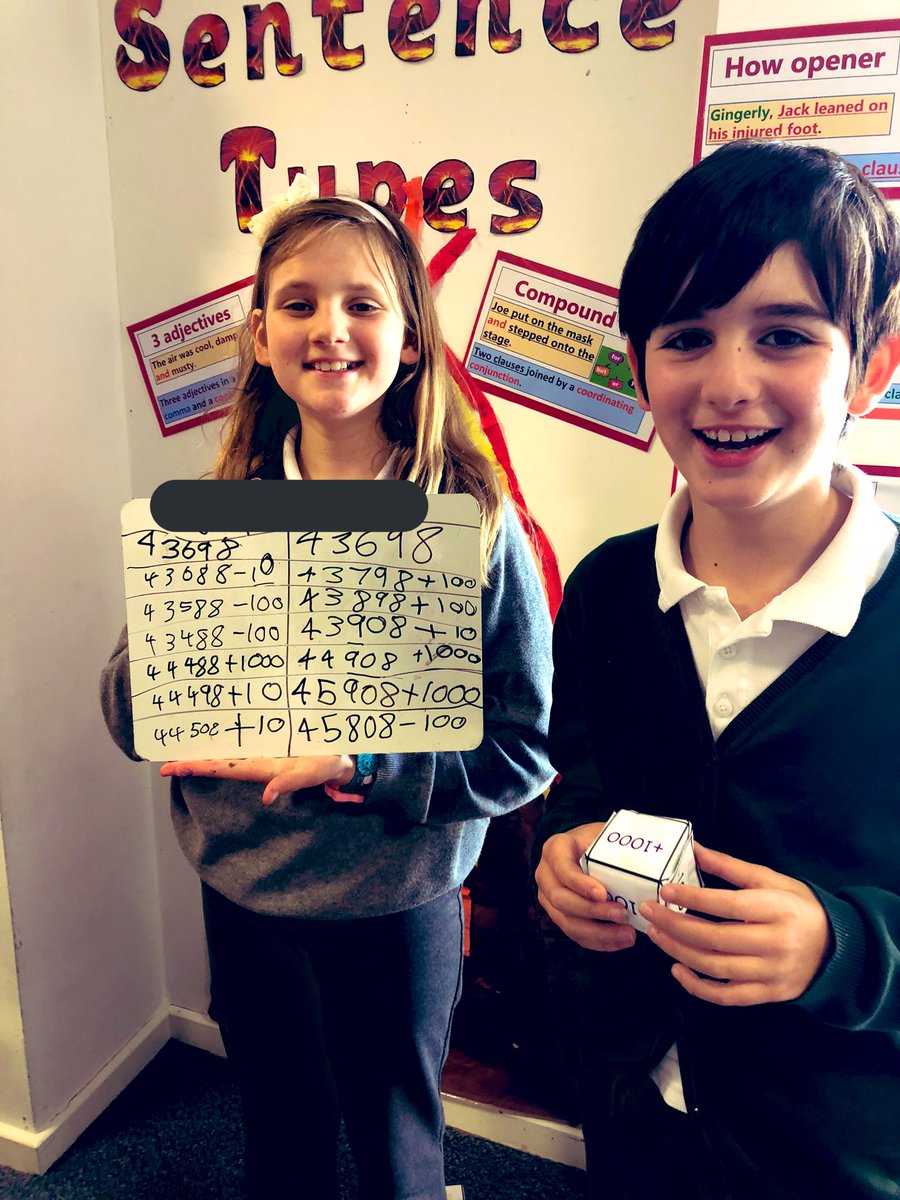 Sentence
Types
How opener
Gingerly, Jack leaned on
his injured foot.
3 adjectives
The air was cool, damp
and musty.
Three adjectives in a
comma and a
Compound
Joe put on the mask
and stepped onto the
stage.
Two clauses joined by a coordinating
conjunction.
for
but
or
43698 43698
43688-10 43798+100
43588-100 43898+100
43488-100 43908+10
44488+1000 44908+1000
44498+10 45908+1000
44508+10 45808-100
+1000